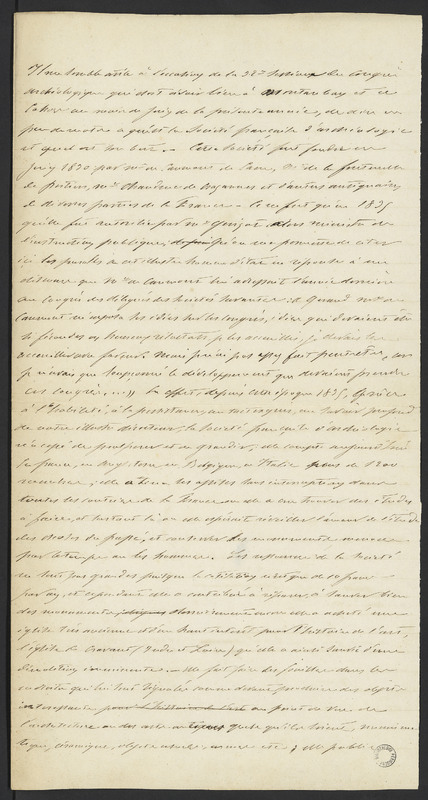 Il me semble utile à l'occasion de la 32e session du congrès
archéologique qui doit avoir lieu à Montauban et à
Cahors au mois de juin de la présente année, de dire un
peu de mots ce qu'est la Société française d'archéologie
et quel est son but. Cette Société fut fondée en
juin 1830 par Mr de Caumont de Caen, Mr de la fontenelle
de Poitiers, Mr Chaudruc de Crazannes et d'autres antiquaires
de diverses parties de la France. ce ne fut qu'en 1835
qu'elle fut autorisée par Mr Guizot alors ministre de
l'instruction publique, on me permettra de citer
ici les paroles de cet illustre homme d'état en réponse à un
discours que Mr de Caumont lui adressait l'année dernière
au Congrès des délégués des Sociétés Savantes : Quand Mr de
Caumont m'exposa ses idées sur les congrès, idées qui devaient être
si fécondes en heureux résultats, je les accueillis, je devais les
accueillir avec faveur. Mais je n'ai pas assez fait peut-être, car
je n'avais pas soupçonné le développement que devaient prendre
ces congrès. » En effet, depuis cette époque 1835, grâce
à l'habileté, à la persistance, au savoir profond
de notre illustre directeur, la Société française d'archéologie
n'a cessé de prospérer et de grandir ; elle compte aujourd'hui
en france, en Angleterre, en Belgique, en Italie plus de
membres ; elle a tenu ses assises sans interruption dans
toutes les contrées de la France où elle a cru trouver des études
à faire, et surtout là où elle espérait réveiller l'amour de l'étude
des choses du passé, et conserver des monuments menacés
par le temps ou les hommes. Les ressources de la Société
ne sont pas grandes puisque la cotisation n'est que de 10 francs
par an, et cependant elle a contribué à réparer, à sauver bien
des monuments, elle a acheté une
église très ancienne et d'un haut intérêt pour l'histoire de l'art,
l'église de Cravant (Indre et Loire) qu'elle a ainsi sauvée d'une
démolition imminente. Elle fait faire des fouilles dans les
endroits qui lui sont signalés comme devant produire des objets
intéressants pour l'histoire de l'art au point de vue de
l'architecture ou des arts quels qu'ils soient, numisma-
tique, céramique, objets usuels, armes etc ; elle publie